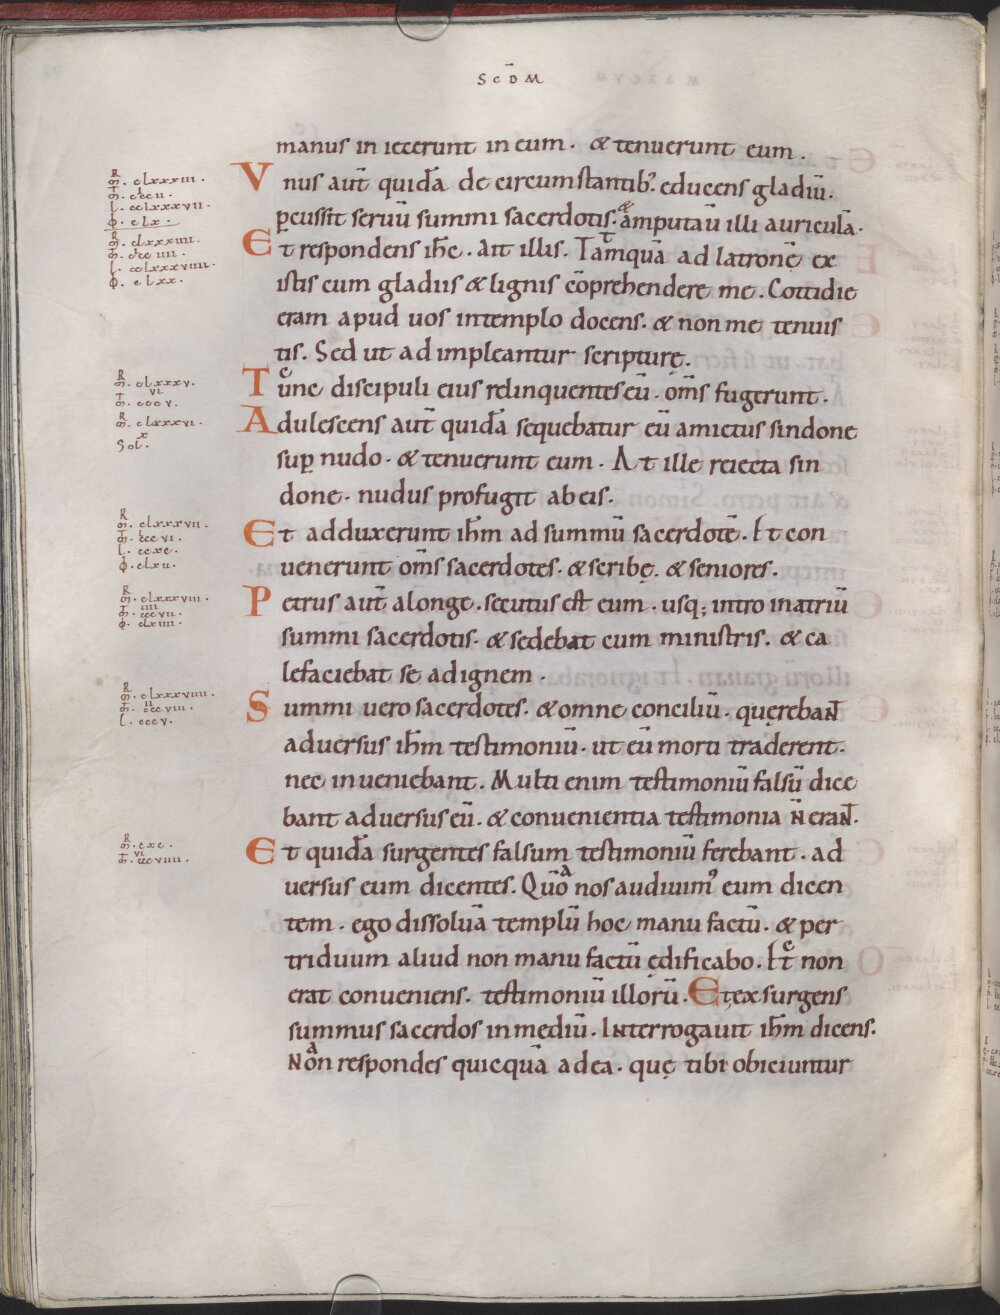 SCD̄M
manus in iecerunt in eum. & tenuerunt eum.
Vnus aut̄ quidā de circumstantib; educens gladiū.
ꝑcussit seruū summi sacerdotis. & amputau̅ illi auriculā.
Et respondens ih̄c. Ait illis. Tāmquā ad latronē ex
istis cum gladiis & lignis cōprehendere me. Cottidie
eram apud uos intemplo docens. & non me tenuis
tis. Sed ut adimpleantur scripturę.
Tunc discipuli eius relinquentes eū. om̄s fugerunt.
Adulescens aut̄ quidā sequebatur eū amictus sindone
suꝑ nudo. & tenuerunt eum. At ille reiecta sin
done. nudus profugit ab eis.
Et adduxerunt ih̄m ad summū sacerdotē. Et con
uenerunt om̄s sacerdotes. & scribę. & seniores.
Petrus aut̄ alonge. secutus est eum. usq; intro inatriū
summi sacerdotis. & sedebat cum ministris. & ca
lefaciebat se adignem.
Summi uero sacerdotes. & omne conciliū. quęrebant
aduersus ih̄m testimoniū. ut eū morti traderent.
nec inueniebant. Multi enim testimoniū falsū dice
bant aduersus eū. & conuenientia testimonia n̄ erant.
Et quidā surgentes falsum testimoniū ferebant. ad
uersus eum dicentes. Quō nos audiuim᾿ eum dicen
tem. ego dissoluā templū hoc manu factū. & per
triduum aliud non manu factū ędificabo. Et non
erat conueniens. testimoniū illorū. Et exsurgens
summus sacerdos in mediū. Interrogauit ih̄m dicens.
Non respondes quicquā adea. quę tibi obiciuntur
R
m̄. clxxxiii.
l. cclxxxvii.
φ. clx.
R
m̄. clxxxiiii.
l. cclxxxviiii.
φ. clxx.
R
m̄. clxxxv.
vi
m̄. cccv.
R
m̄. clxxxvi.
Sol.
R
m̄. clxxxvii.
m̄. cccvi.
l. ccxc.
φ. clxii.
R
m̄. clxxxviii.
iiii
m̄. cccvii.
φ. clxiiii.
R
m̄. clxxxviiii.
ii
m̄. cccviii.
l. cccv.
R
m̄. cxc.
vi
m̄. cccviiii.